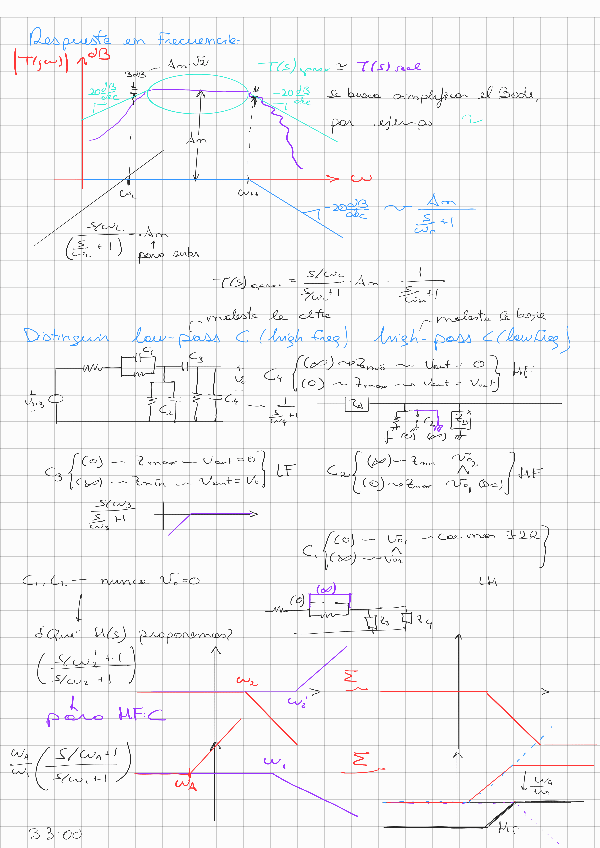 Respuesta en Frecuencia
|T(jω)| dB
3dB
Am √2
T(s)aprox ≃ T(s)real
20 dB/dec
-20 dB/dec
se busca simplificar el Bode,
por ejemplo
Am
ω
ωL
ωH
-20dB/dec ~ Am / (s/ωH + 1)
(s/ωL / (s/ωL + 1)) · Am
para subir
T(s)aprox = s/ωL / (s/ωL + 1) · Am · 1 / (s/ωH + 1)
molesta la alta
molesta la baja
Distinguir low-pass C (high freq) high-pass C (low freq)
C1
C3
C4 {(∞) ~ Zmin ~ Vout = 0
(0) ~ Zmax ~ Vout = Vout} HF
C2
C4
1 / (s/ω4 + 1)
(0)
(∞)
C3 {(0) ~ Zmax ~ Vout = 0
(∞) ~ Zmin ~ Vout = Vo} LF
C2 {(∞) ~ Zmin
(0) ~ Zmax} HF
s/ω3 / (s/ω3 + 1)
C1
C1, C2 ~ nunca Vo = 0
(∞)
(0)
¿Qué H(s) proponemos?
(s/ω2' + 1 / s/ω2 + 1)
ω2
ω2'
Σ
para HFC
ωA/ω1 (s/ωA + 1 / s/ω1 + 1)
ωA
ω1
Σ
ωA/ω1
33:00